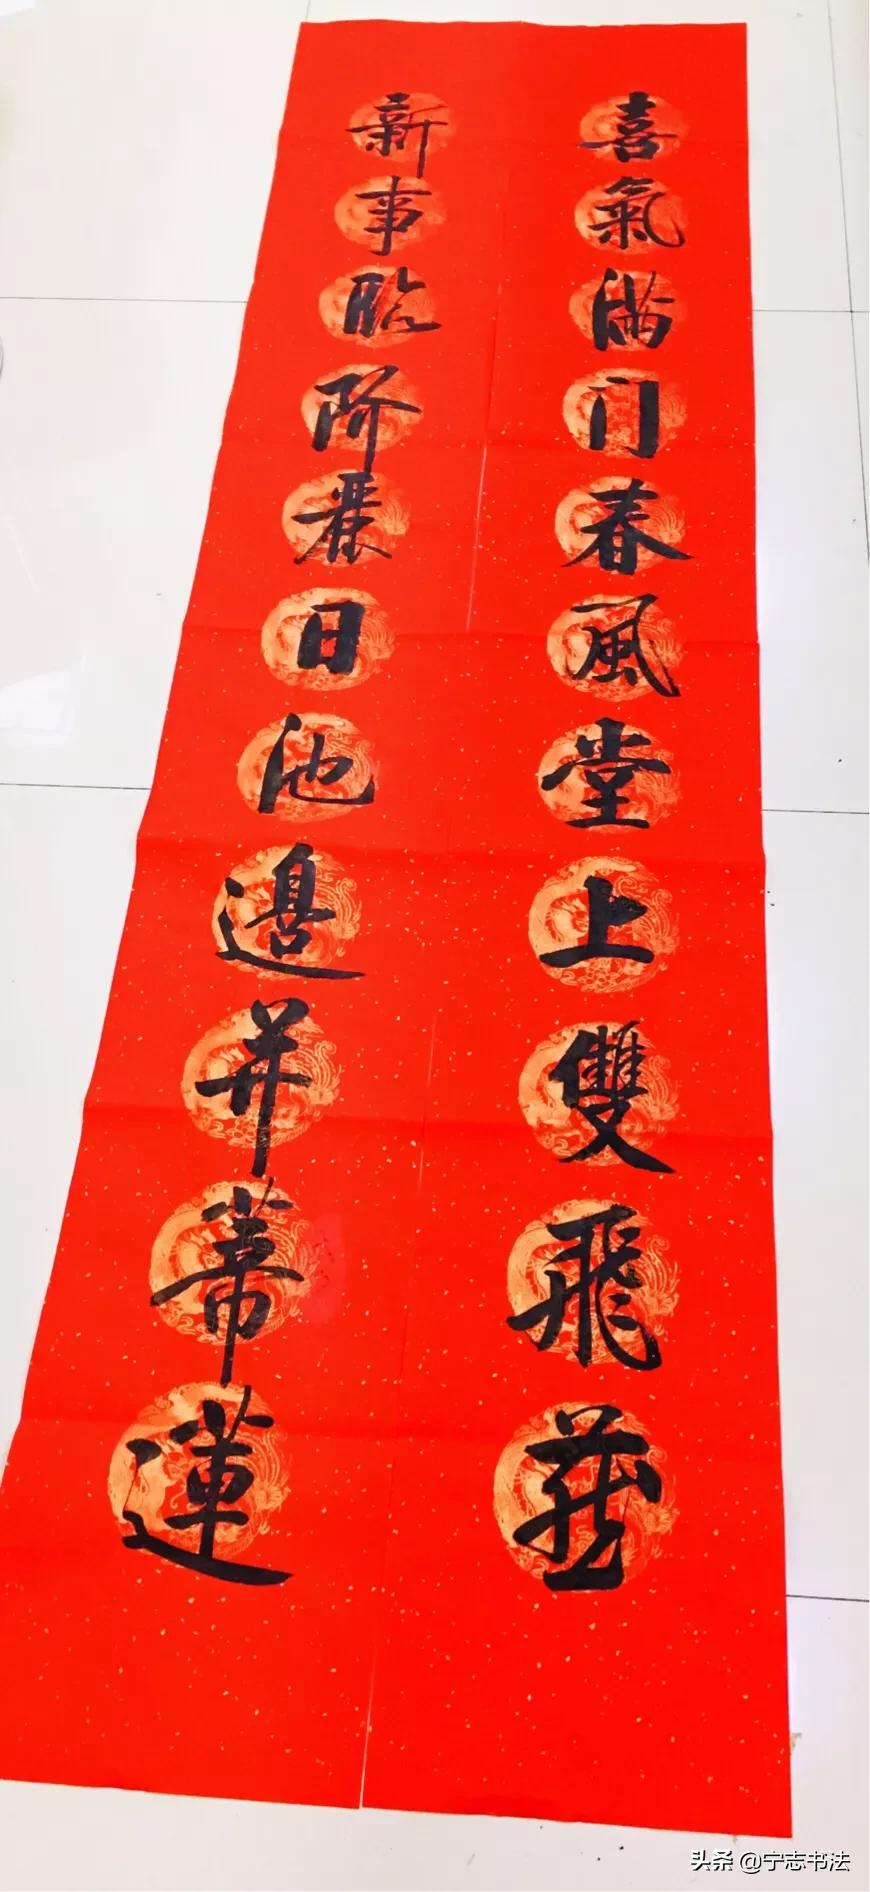 喜氣满门春風堂上雙飛燕
新事臨阶麗日池邊并蒂蓮
头条 @宁志书法